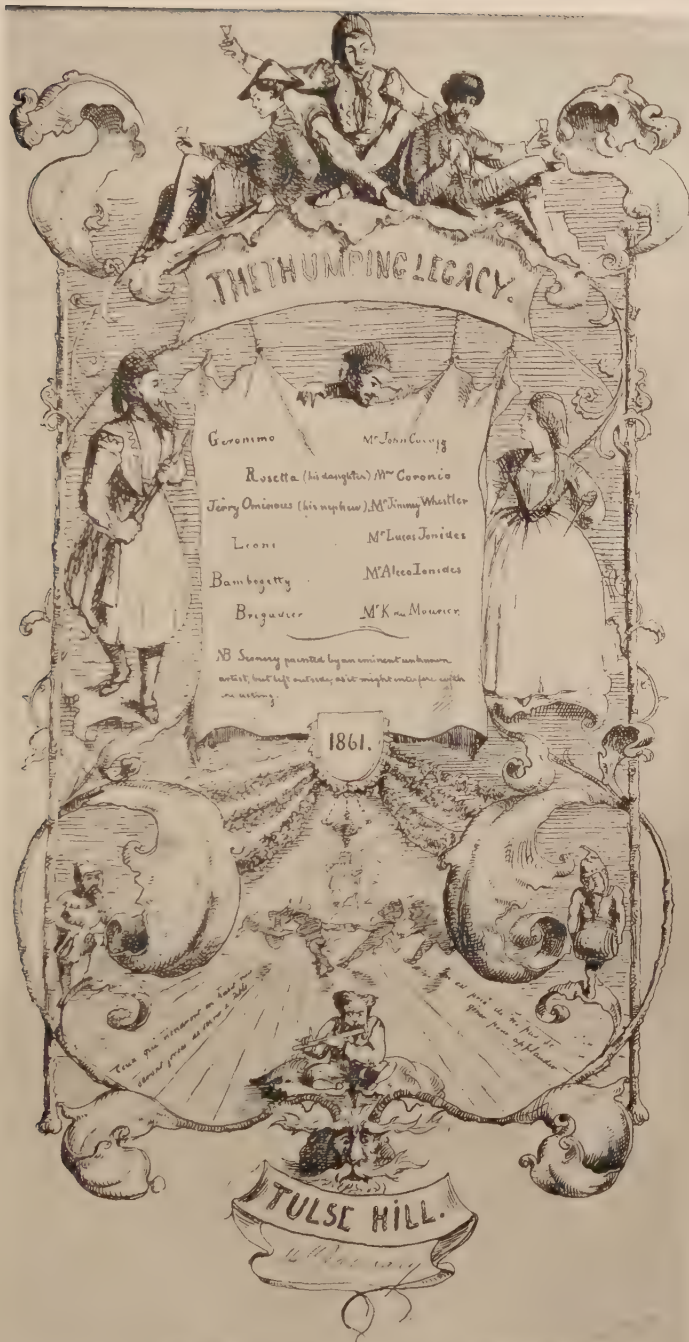 THE THUMPING LEGACY.
Geronimo Mr John
Rosetta (his daughter) Mme Coronio
Jerry Ominous (his nephew). Mr Jimmy Whistler
Leoni Mr Lucas Ionides
Bambogetty Mr Aleco Ionides
Brigadier Mr K du Maurier.
NB Scenery painted by an eminent unknown
artist, but left outside, as it might interfere with
acting.
1861.
Ceux qui
seront priés de
est prié de ne
que pour applaudir
TULSE HILL.